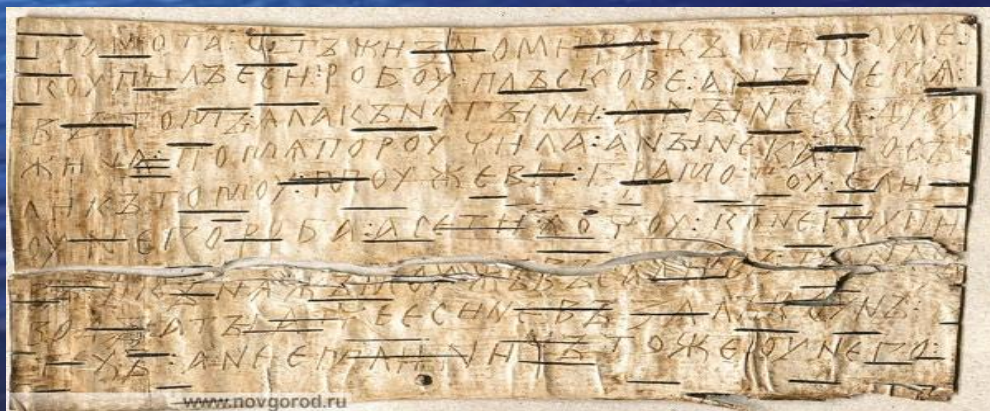 ГРАМОТА : ѠТЪ ЖИЗНОМИРА : КЪ МИКОУЛЕ :
КОУПИЛЪ ЕСИ : РОБОУ : ПЛЪСКОВЕ : А НЫНЕ МѦ :
ВЪ ТОМЪ : ѦЛА КЪНѦГЫНИ : А НЫНЕ СѦ ДРОУ
ЖИНА : ПО МѦ ПОРОУЧИЛА : А НЫНЕ КА : ПОСЪ
ЛИ КЪ ТОМОУ : МОУЖЕВИ : ГРАМОТОУ : ЕЛИ
ОУ НЕГО РОБА : А СЕ ТИ ХОЧОУ : КОНЕ КОУПИ
КЪНѦЖЪ МОУЖЪ ВЪСА
ДЪ : А ТЫ АТЧЕ ЕСИ НЕ ВЪЗАЛЪ КОУНЪ :
ТЕХЪ : А НЕ ЕМЛИ : НИЧЪТО ЖЕ ОУ НЕГО :
www.novgorod.ru